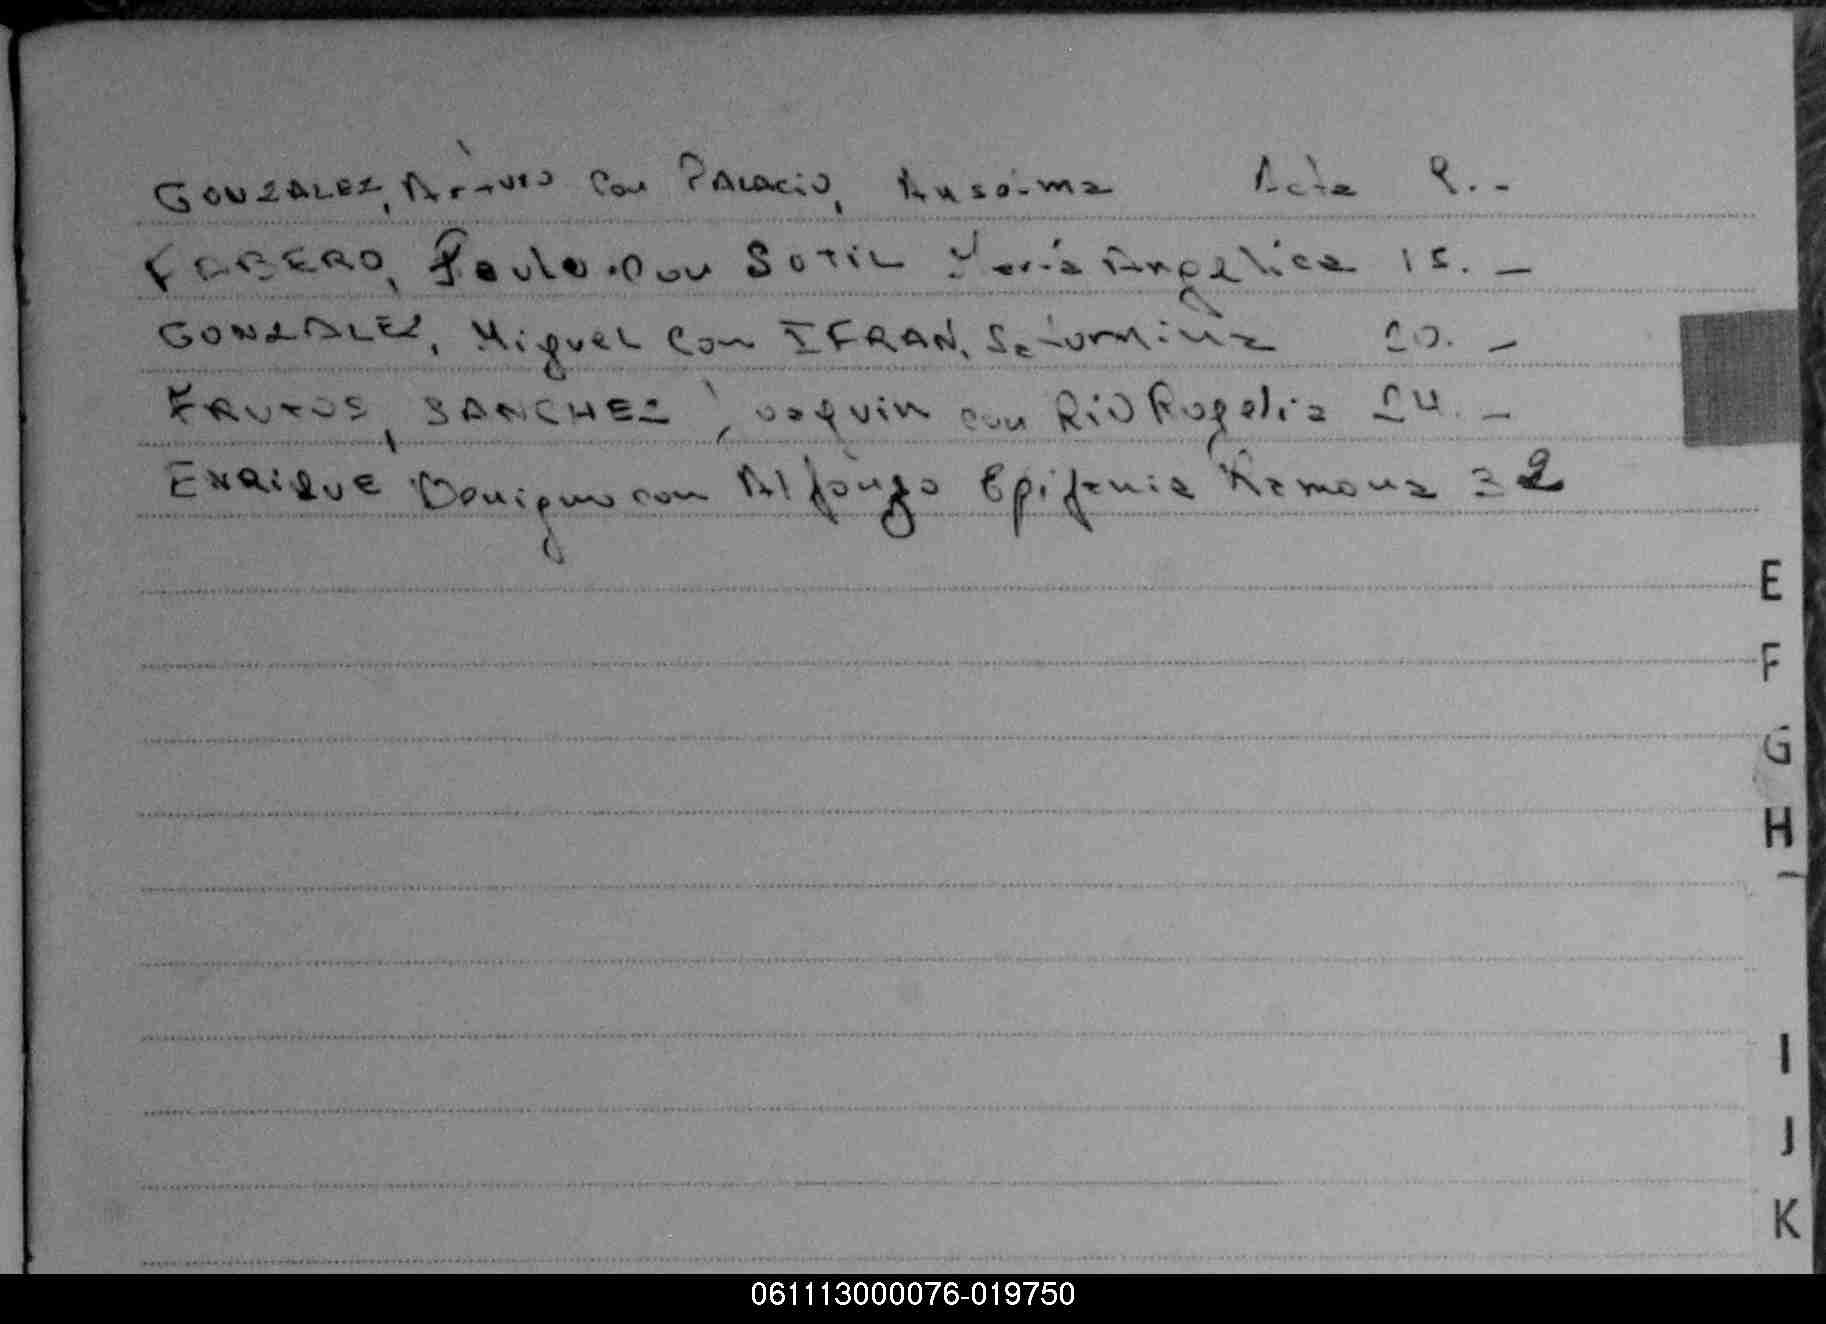 GONZALEZ, Arturo con PALACIO, Ansoima Acta 9.-
FABERO, Paulo con SOTIL María Angelica 15.-
GONZALEZ, Miguel con IFRAN, Saturnina 20.-
FRUTOS, SANCHEZ, Joaquin con RIO Rogelia 24.-
ENRIQUE Benigno con Alfonzo Epifania Ramona 32
E
F
G
H
I
J
K
061113000076-019750